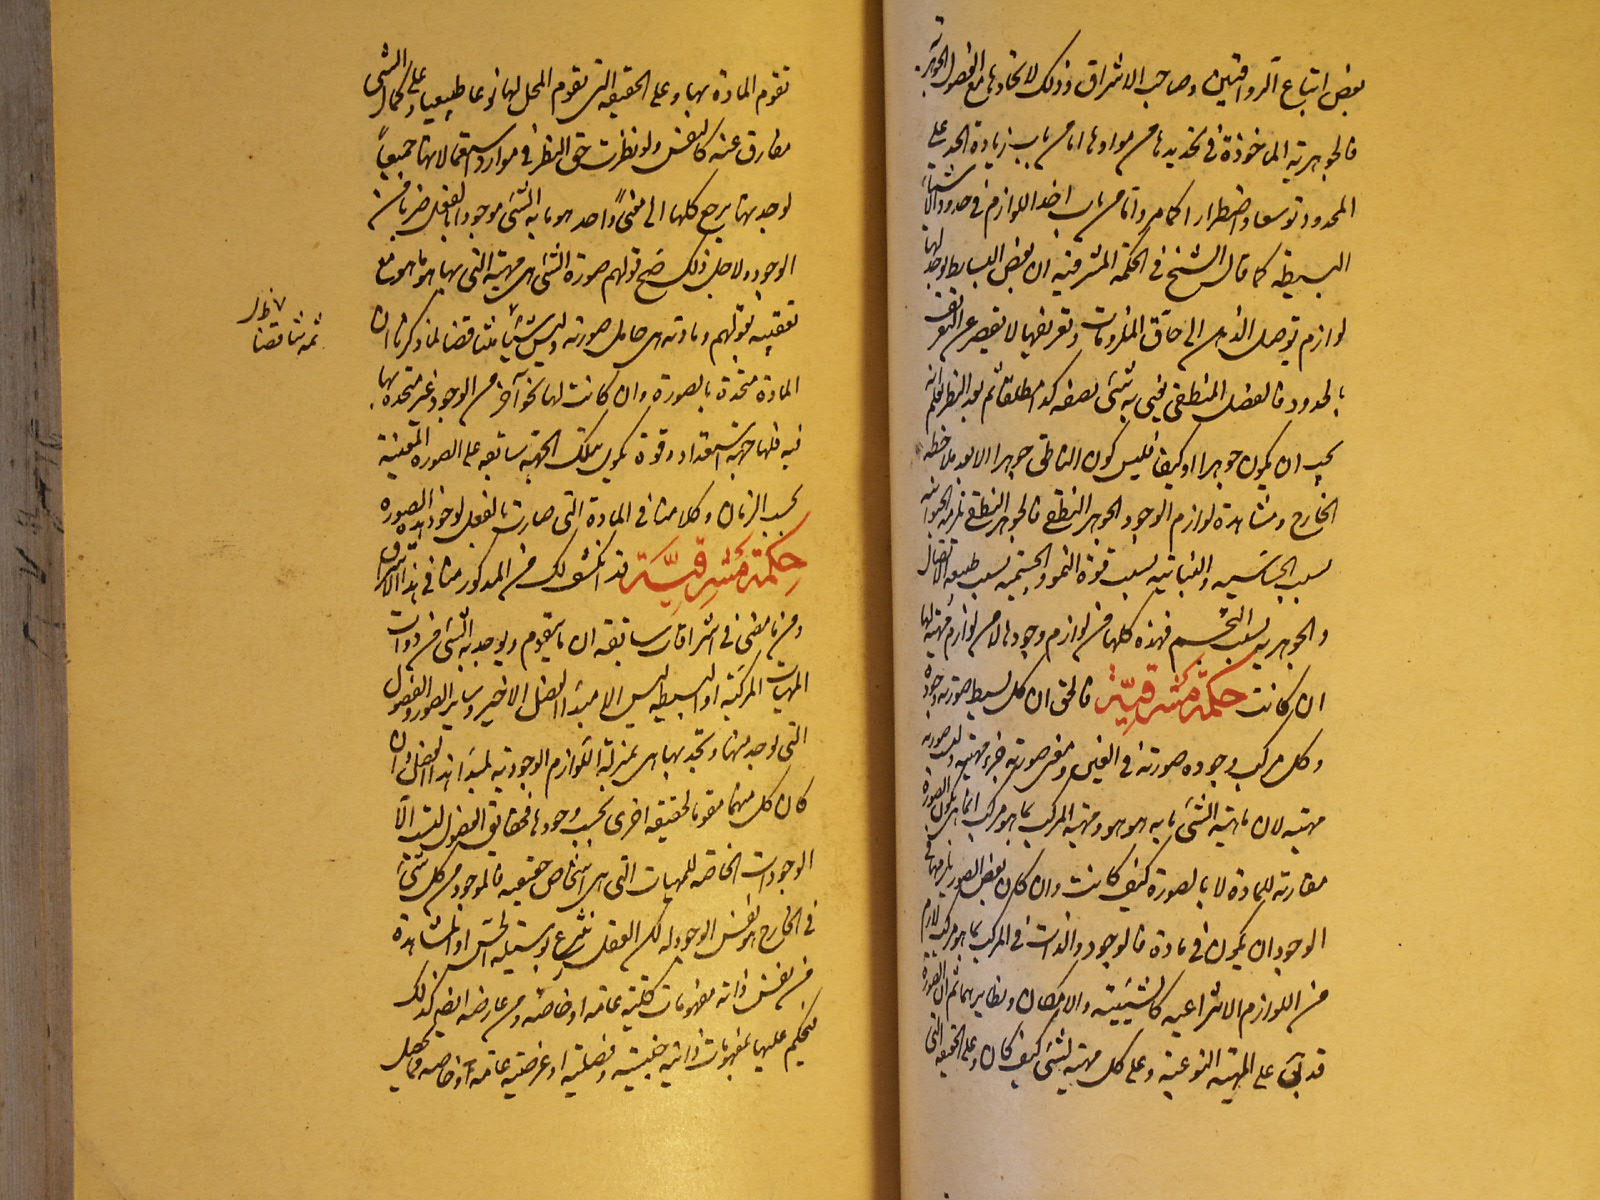 بعض اتباع الرواقيين وصاحب الاشراق وذلك لاتحادها مع الفصول الجوهرية
فالجوهرية الماخوذة في تحديدها من موادها اما من باب زيادة الحد على
المحدود توسعا واضطرارا كما مر واما من باب اخذ اللوازم في حدود الاشياء
البسيطة كما قال الشيخ في الحكمة المشرقية ان بعض البسايط يوجد لها
لوازم توصل الذهن الى حاق الملزومات وتعريفها لا يقصر عن التعريف
بالحدود فالفصل المنطقي يعنى به شئ بصفة كذا مطلقا ثم بعد النظر يعلم انه
يجب ان يكون جوهرا او كيفا فليس كون الناطق جوهرا الا بعد ملاحظة
الخارج ومشاهدة لوازم الوجود الجوهر النطقي فالجوهر النطقي يلزمه الحيوانية
بسبب الحساسية والنباتية بسبب قوة النمو والجسمية بسبب طبيعة الاتصال
والجوهرية بسبب التجسم فهذه كلها من لوازم وجودها لا من لوازم مهيته لها
ان كانت حكمة مشرقية فالحق ان كل بسيط صورته وجوده
وكل مركب وجوده صورته في العين ومعنى صورته جزء مهيته وليست صورته
مهيته لان ماهية الشئ ما به هو هو ومهية المركب بما هو مركب انما هى بكون الصورة
مقارنة للمادة لا بالصورة كيف كانت وان كان بعض الصور يلزمها في
الوجود ان يكون في مادة فالوجود والذات في المركب بما هو مركب لازم
من اللوازم الانتزاعية كالشيئية والامكان ونظايرهما ثم ان الصورة
قد تق على المهية النوعية وعلى كل مهية لشئ كيف كان وعلى الحقيقة التى
تقوم المادة بها وعلى الحقيقة التى تقوم المحل لها نوعا طبيعيا وعلى كمال الشئ
مفارق عنه كالنفس ولو نظرت حق النظر في موارد استعمالاتها جميعاً
لوجدتها يرجع كلها الى معنىً واحد هو ما به الشئ موجود بالفعل ضربا من
الوجود ولاجل ذلك صح قولهم صورة الشئ هى مهيته التى بها هو ما هو مع
تعقيبه بقولهم ومادته هى حامل صورته وليس شيئا متناقضا لما ذكرنا ان
المادة متحدة بالصورة وان كانت لها نحو آخر من الوجود غير متحدة بها
فيه فلها جهة استعداد وقوة يكون بتلك الجهة سابقة على الصورة المعينة
بحسب الزمان وكلامنا في المادة التى صارت بالفعل لوجود هذه الصورة
حكمة مشرقية قد انكشف لك من المذكور منا في هذا الاشراق
ومن ما مضى في اشراقات سابقة ان ما يتقوم ويوجد به الشئ من ذوات
المهيات المركبة او البسيطة ليس الا مبدأ الفصل الاخير وساير الصور والفصول
التى يوجد منها ويتحد بها هى بمنزلة اللوازم الوجودية لمبدأ هذا الفصل وان
كان كل منهما مقوما لحقيقة اخرى بحسب وجودها فحقايق الفصول ليست الا
الوجودات الخاصة للمهيات التى هى اشخاص حقيقية فالموجود من كل شئ
في الخارج هو نفس الوجود له لكن العقل ينتزع بوسيلة الحس او المشاهدة
من نفس ذاته مفهومات كلية عامة او خاصة ومن عارضه ايضا كذلك
فيحكم عليها بمفهومات ذاتية جنسية وفصلية او عرضية عامة او خاصة فما يحصل
ثمه متناقضا